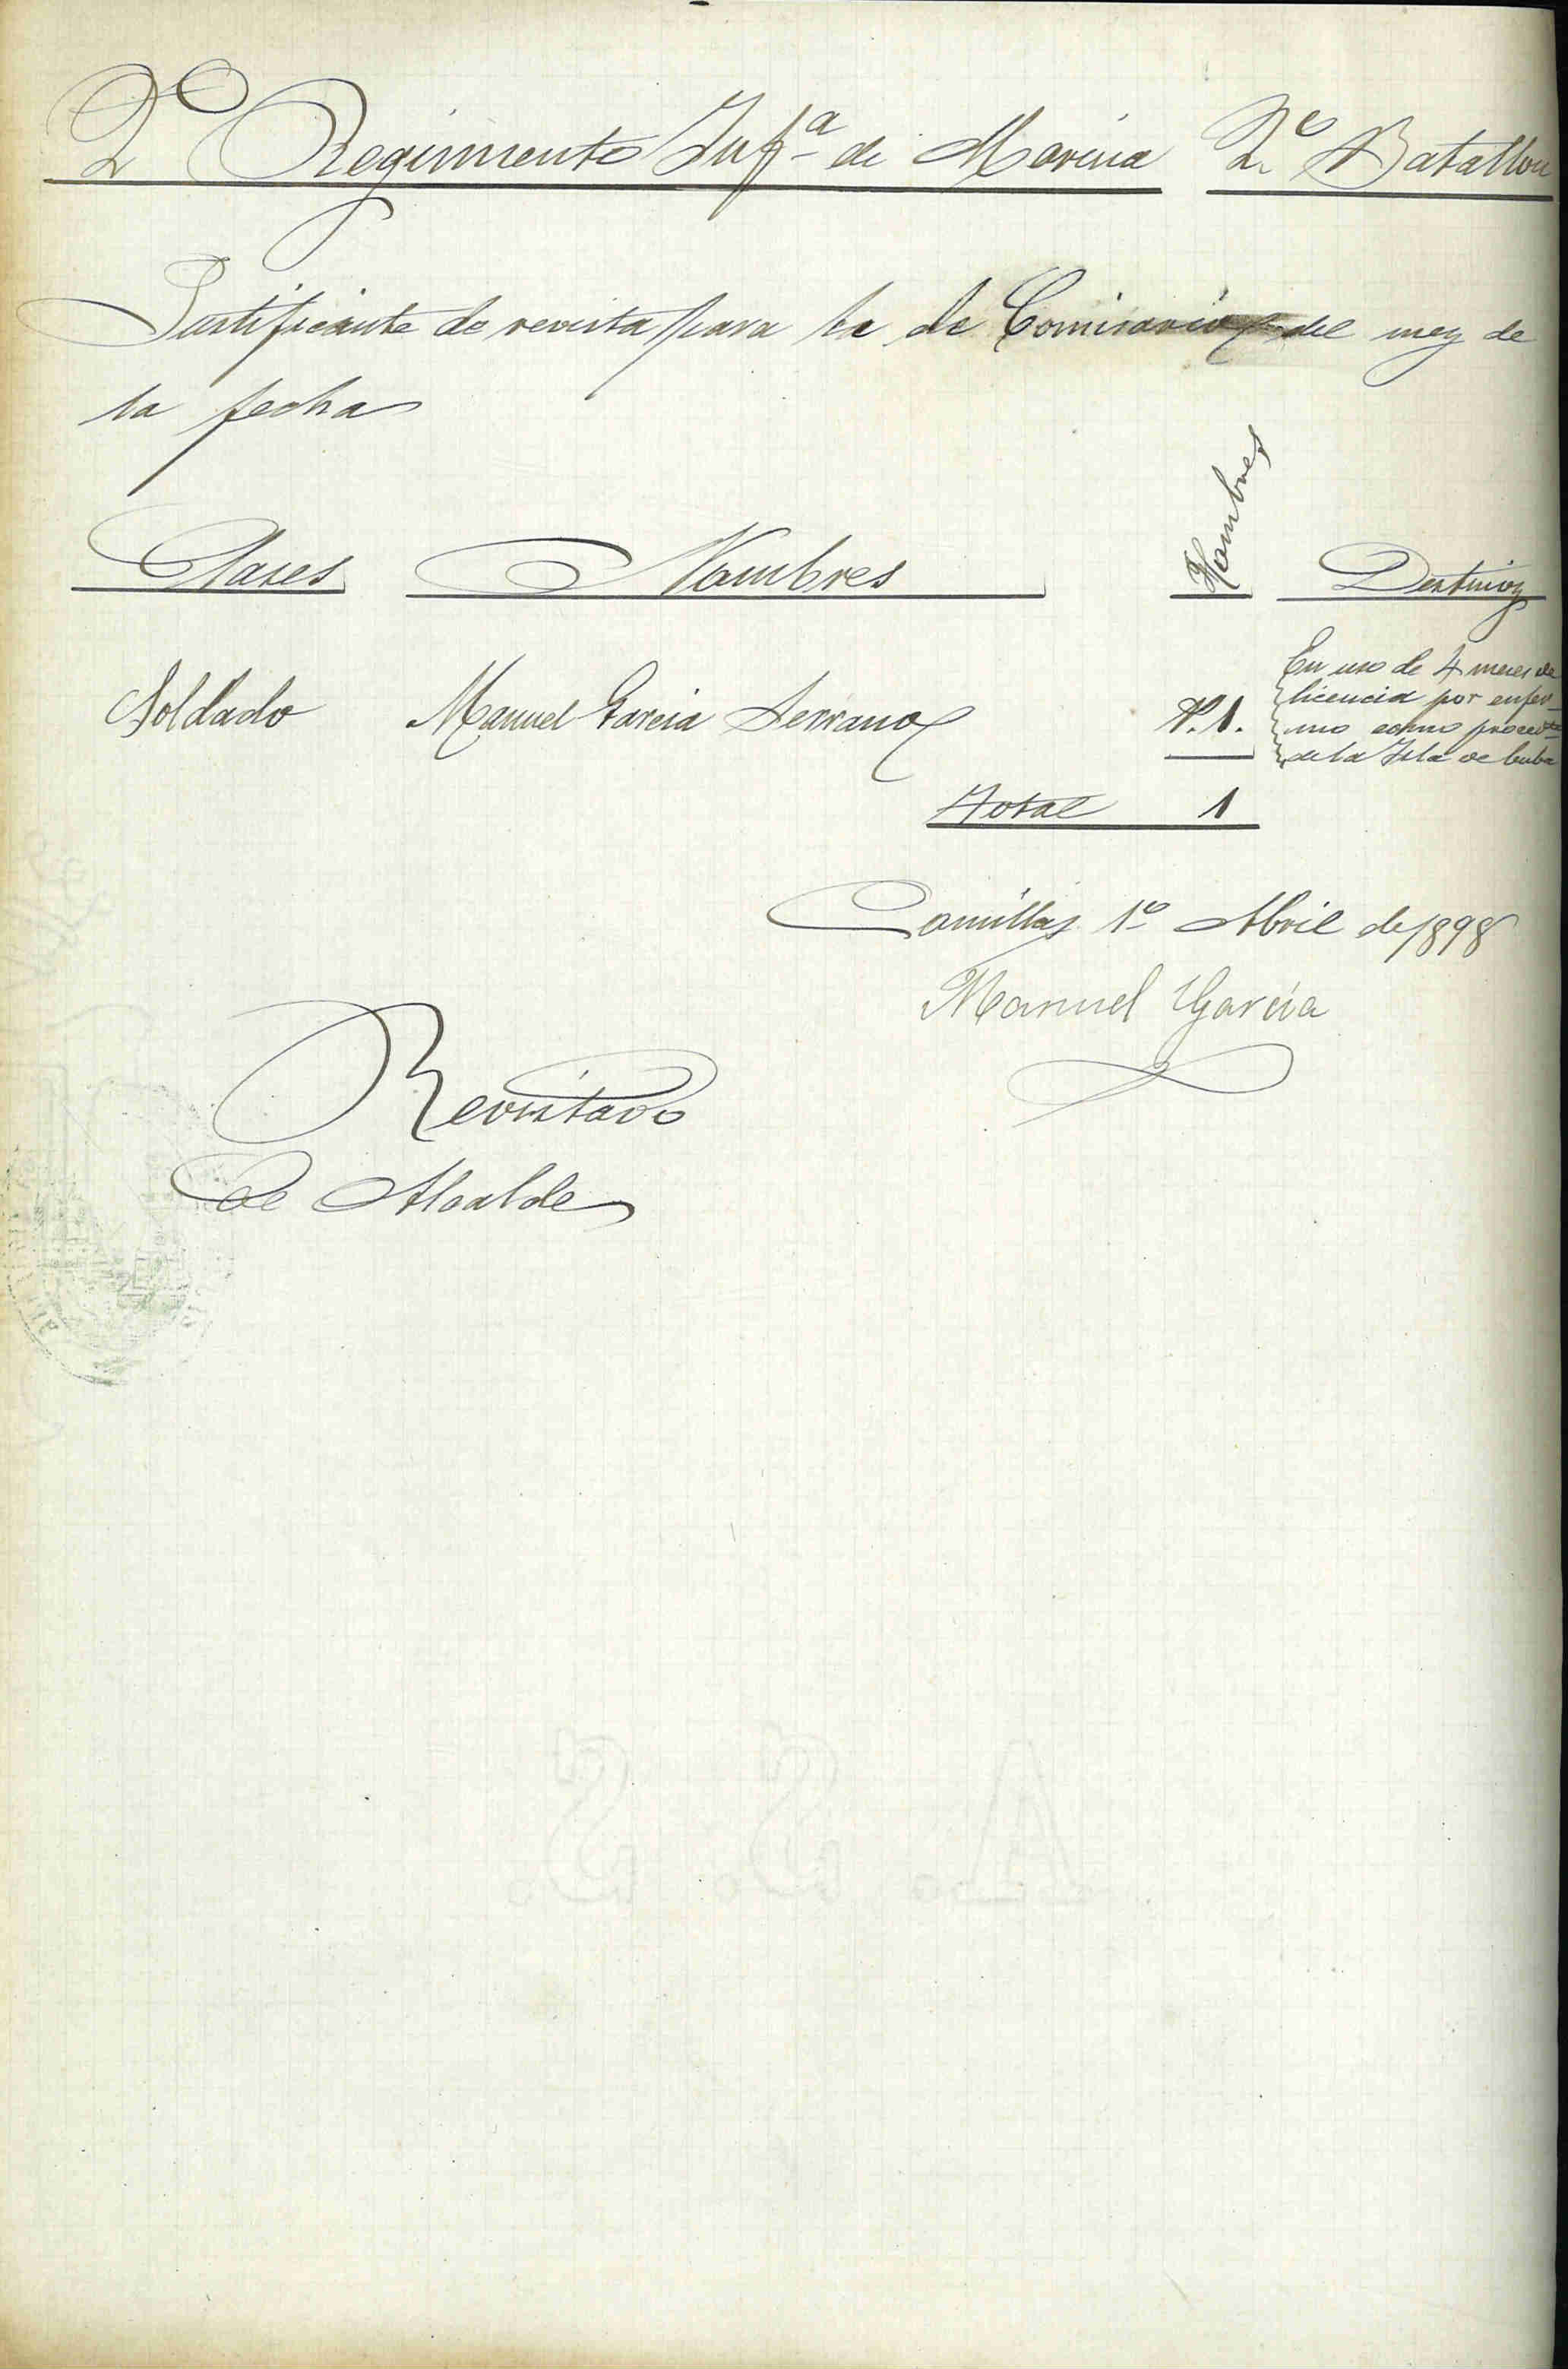 2º Regimiento Infª de Marina 2º Batallon
Justificante de revista para la de Comisario del mes de
la fecha
Clases Nombres Hombres Destinos
Soldado Manuel Garcia Serrano P. 1. En uso de 4 meses de
licencia por enfer-
mo como procedte
de la Isla de Cuba
Total 1
Comillas 1º Abril de 1898
Manuel Garcia
Revistado
El Alcalde
A. S. S.